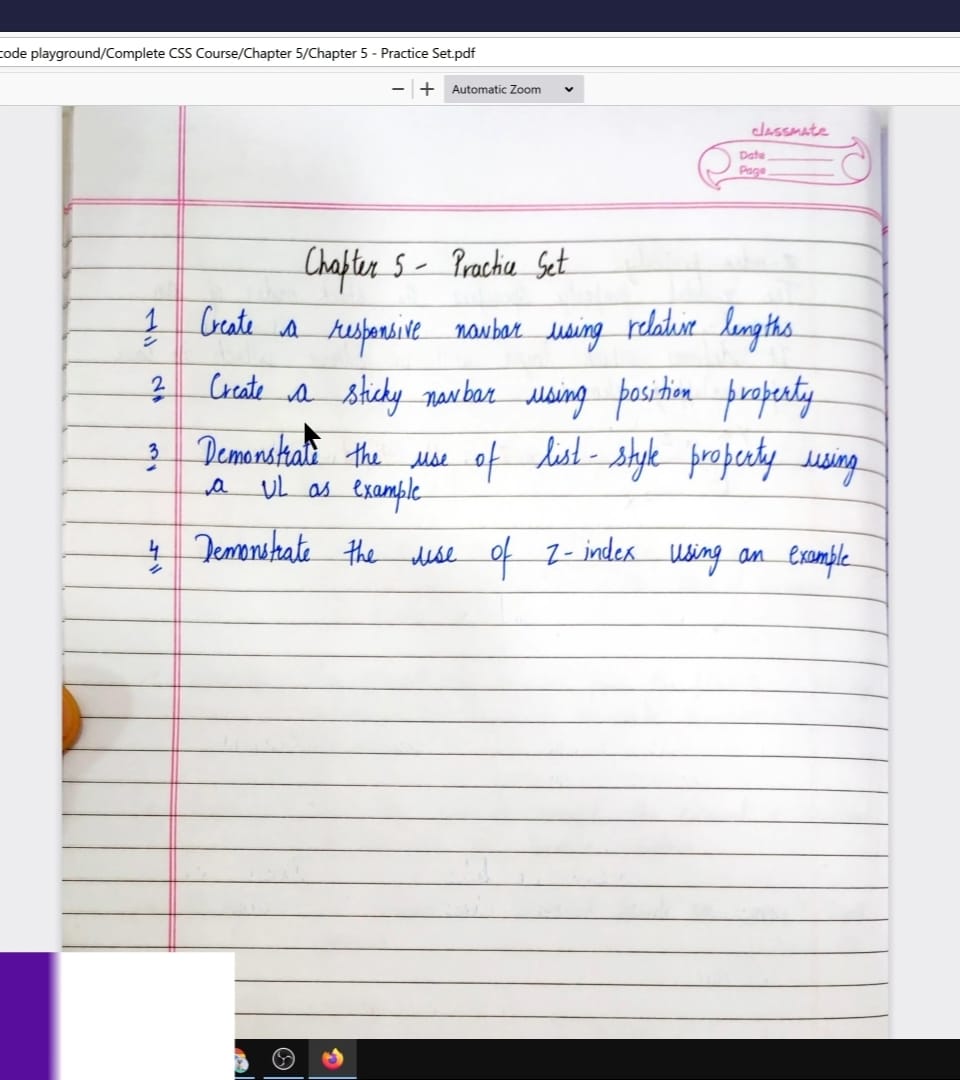 code playground/Complete CSS Course/Chapter 5/Chapter 5 - Practice Set.pdf
− + Automatic Zoom
classmate
Date
Page
Chapter 5 - Practice Set
1 Create a responsive navbar using relative lengths
2 Create a sticky navbar using position property
3 Demonstrate the use of list-style property using
a UL as example
4 Demonstrate the use of z-index using an example